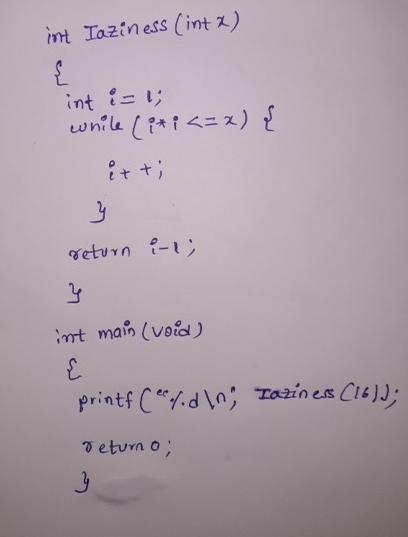 int Iaziness (int x)
{
int i = 1;
while ( i * i <= x) {
i + +;
}
return i-1;
}
int main (void)
{
printf ("%.d\n", Iaziness (16));
return 0;
}